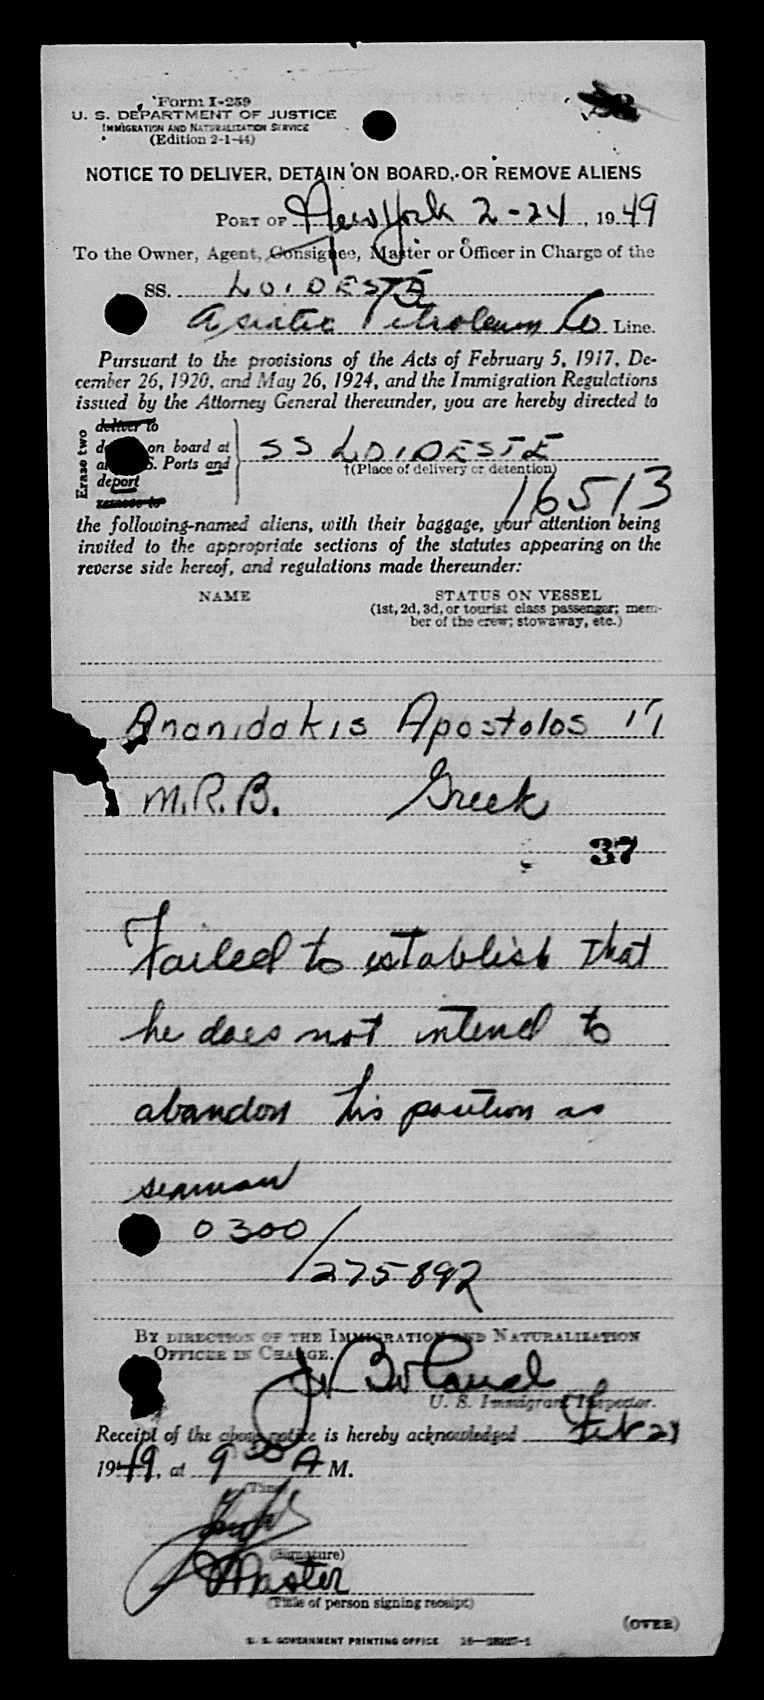 Form I-259
U. S. DEPARTMENT OF JUSTICE
IMMIGRATION AND NATURALIZATION SERVICE
(Edition 2-1-44)
NOTICE TO DELIVER, DETAIN ON BOARD, OR REMOVE ALIENS
PORT OF New York 2-24, 1949
To the Owner, Agent, Consignee, Master or Officer in Charge of the
SS. LOIDESTE
Asiatic Petroleum Co Line.
Pursuant to the provisions of the Acts of February 5, 1917, De-
cember 26, 1920, and May 26, 1924, and the Immigration Regulations
issued by the Attorney General thereunder, you are hereby directed to
Erase two
deliver to
on board at
S. Ports and
deport
remove to
SS LOIDESTE
†(Place of delivery or detention)
16513
the following-named aliens, with their baggage, your attention being
invited to the appropriate sections of the statutes appearing on the
reverse side hereof, and regulations made thereunder:
NAME STATUS ON VESSEL
(1st, 2d, 3d, or tourist class passenger; mem-
ber of the crew; stowaway, etc.)
Ananidakis Apostolos
M.R.B. Greek
37
Failed to establish that
he does not intend to
abandon his position as
seaman
0300/275892
BY DIRECTION OF THE IMMIGRATION AND NATURALIZATION
OFFICER IN CHARGE.
U. S. Immigrant Inspector.
Receipt of the above notice is hereby acknowledged Feb 24
1949, at 9 00 A M.
(Time)
(Signature)
Master
(Title of person signing receipt)
(OVER)
U. S. GOVERNMENT PRINTING OFFICE